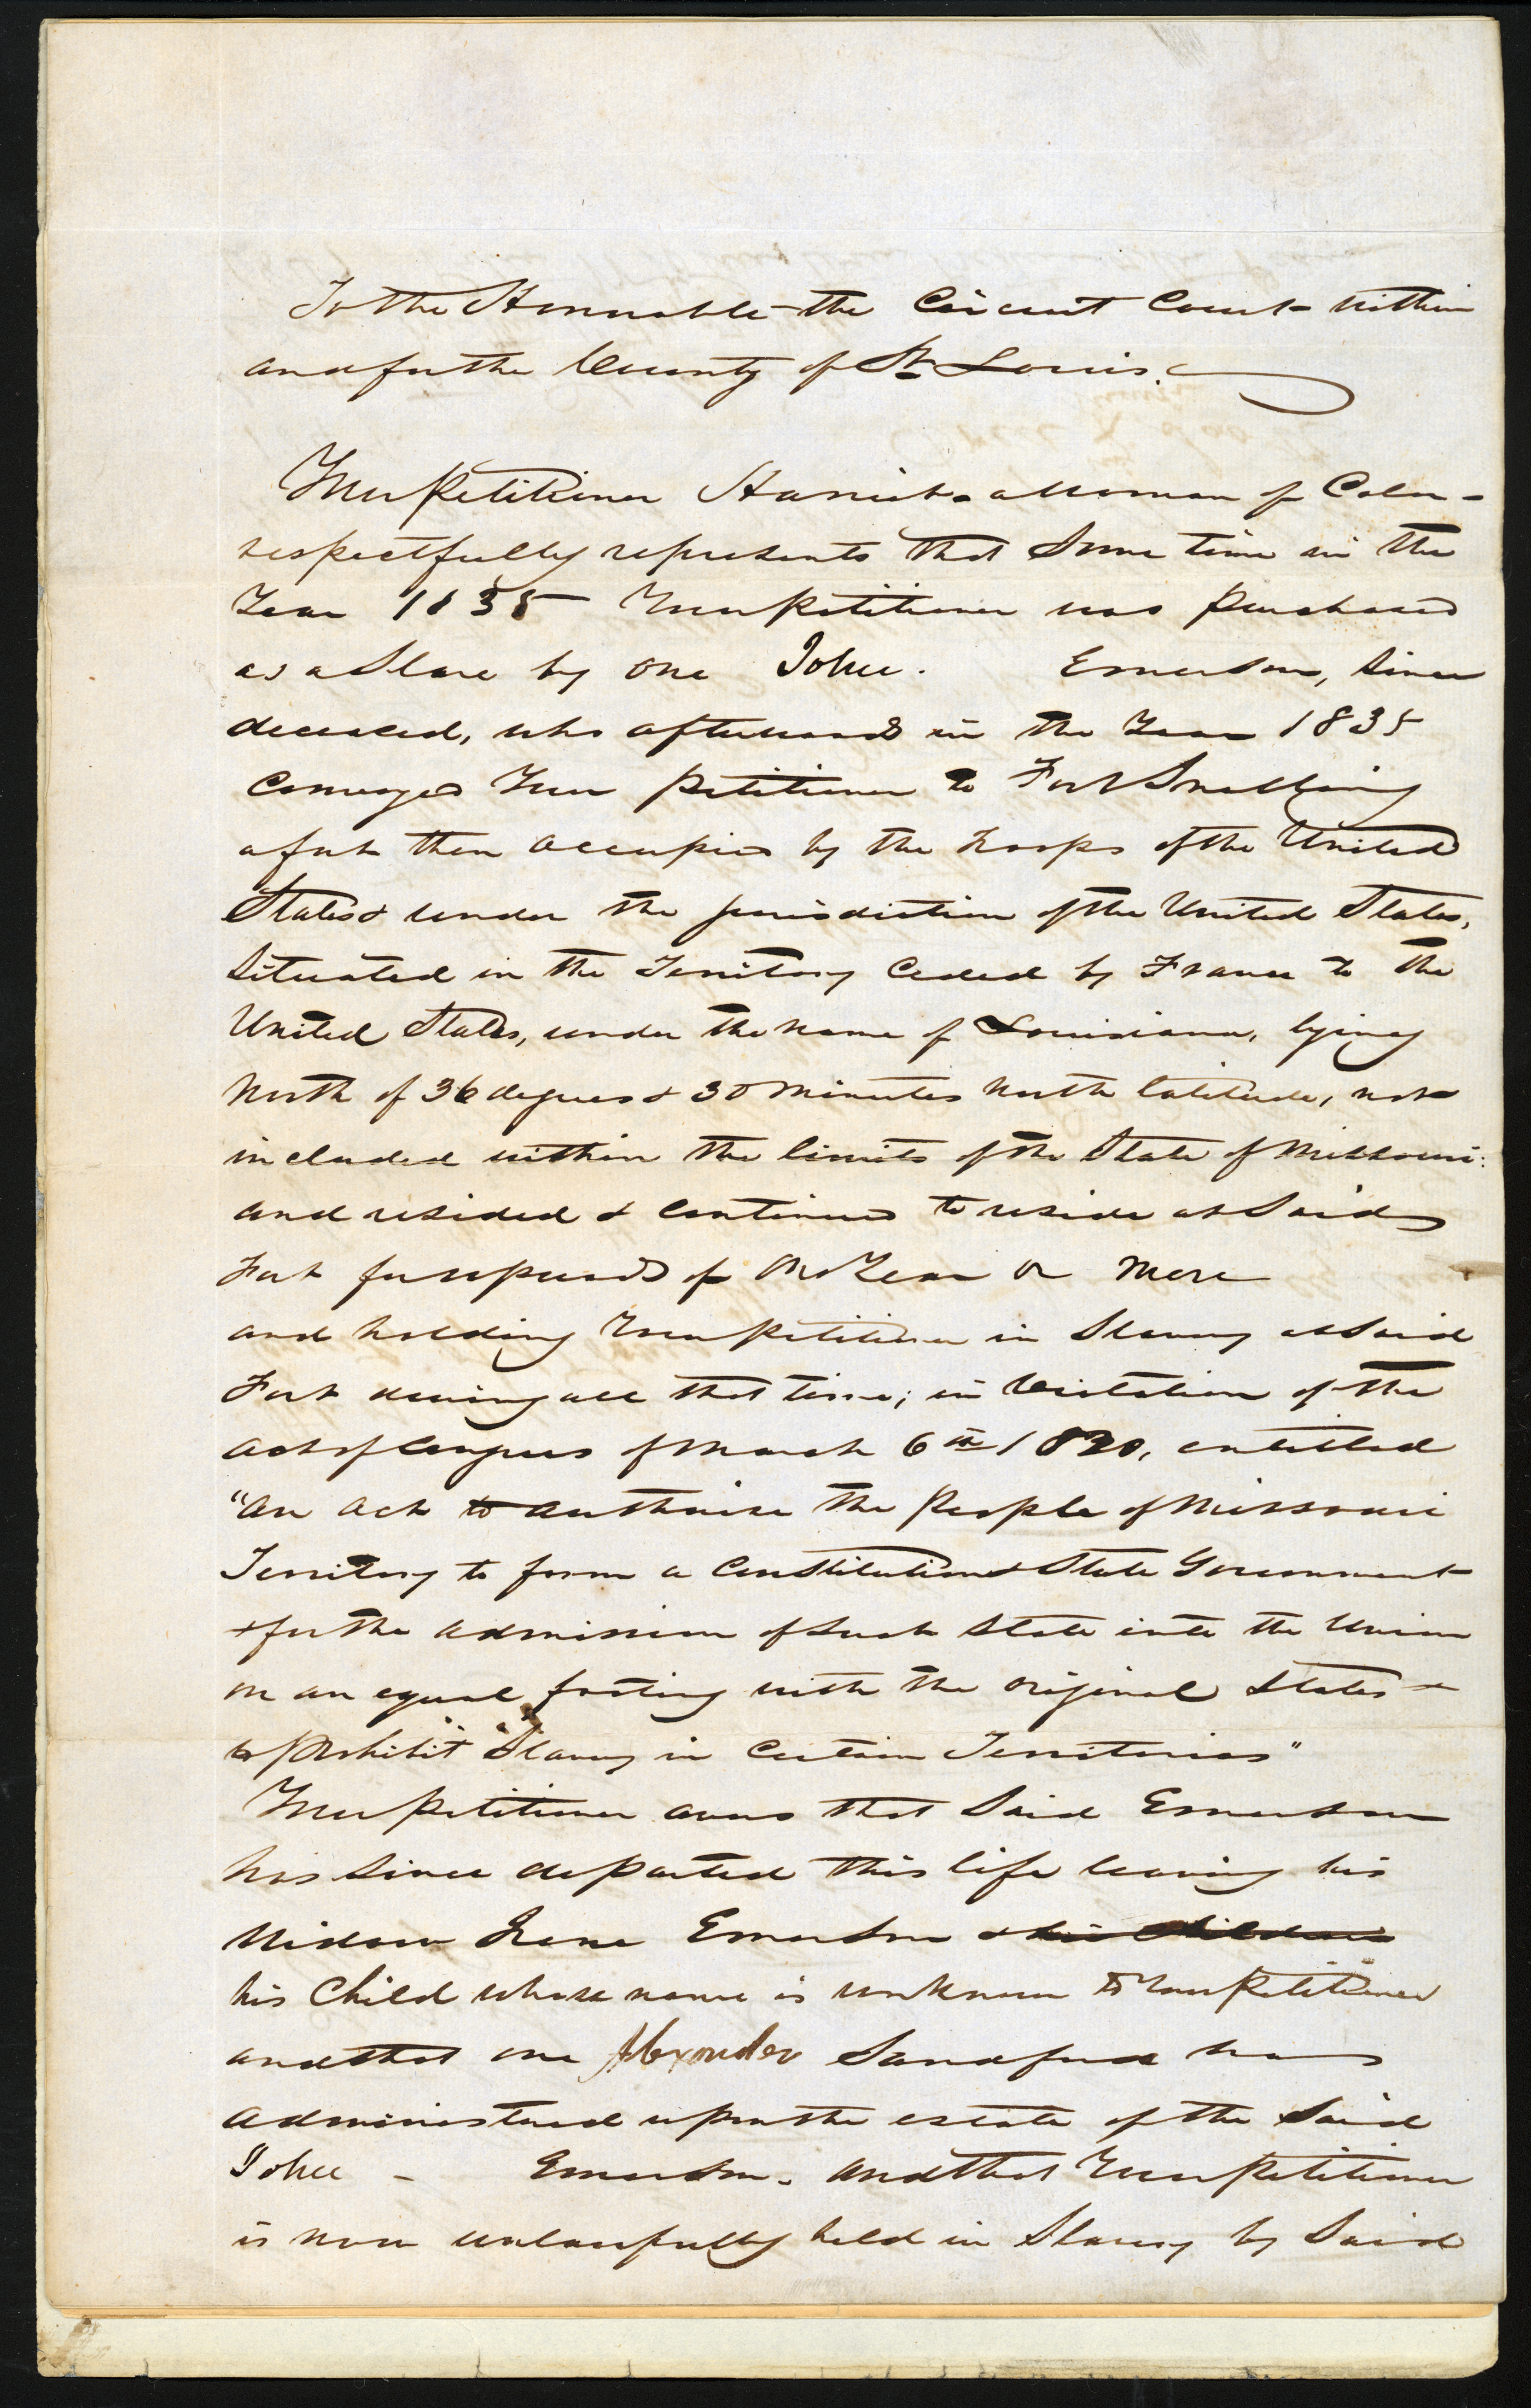 To the Honorable the Circuit Court within
and for the County of St Louis.
Your Petitioner Harriet a woman of Color
respectfully represents that some time in the
Year 1835 Your Petitioner was purchased
as a Slave by one John. Emerson, since
deceased, who afterwards in the Year 1835
Conveyed Your petitioner to Fort Snelling
a fort then occupied by the troops of the United
States & under the jurisdiction of the United States,
Situated in the Territory Ceded by France to the
United States, under the name of Louisiana, lying
North of 36 degrees & 30 minutes North latitude, not
included within the limits of the State of Missouri:
and resided & continued to reside at said
Fort for upwards of One Year or more
and holding Your Petitioner in Slavery at said
Fort during all that time; in violation of the
Act of Congress of March 6th 1820, entitled
"An Act to authorise the People of Missouri
Territory to form a Constitution & State Government
& for the admission of such State into the Union
on an equal footing with the original States &
to prohibit Slavery in Certain Territories"
Your Petitioner avers that said Emerson
has since departed this life leaving his
Widow Irene Emerson & his children
his Child whose name is unknown to Your Petitioner
and that one Alexander Sandford has
administered upon the estate of the said
John - Emerson. and that Your Petitioner
is now unlawfully held in Slavery by said